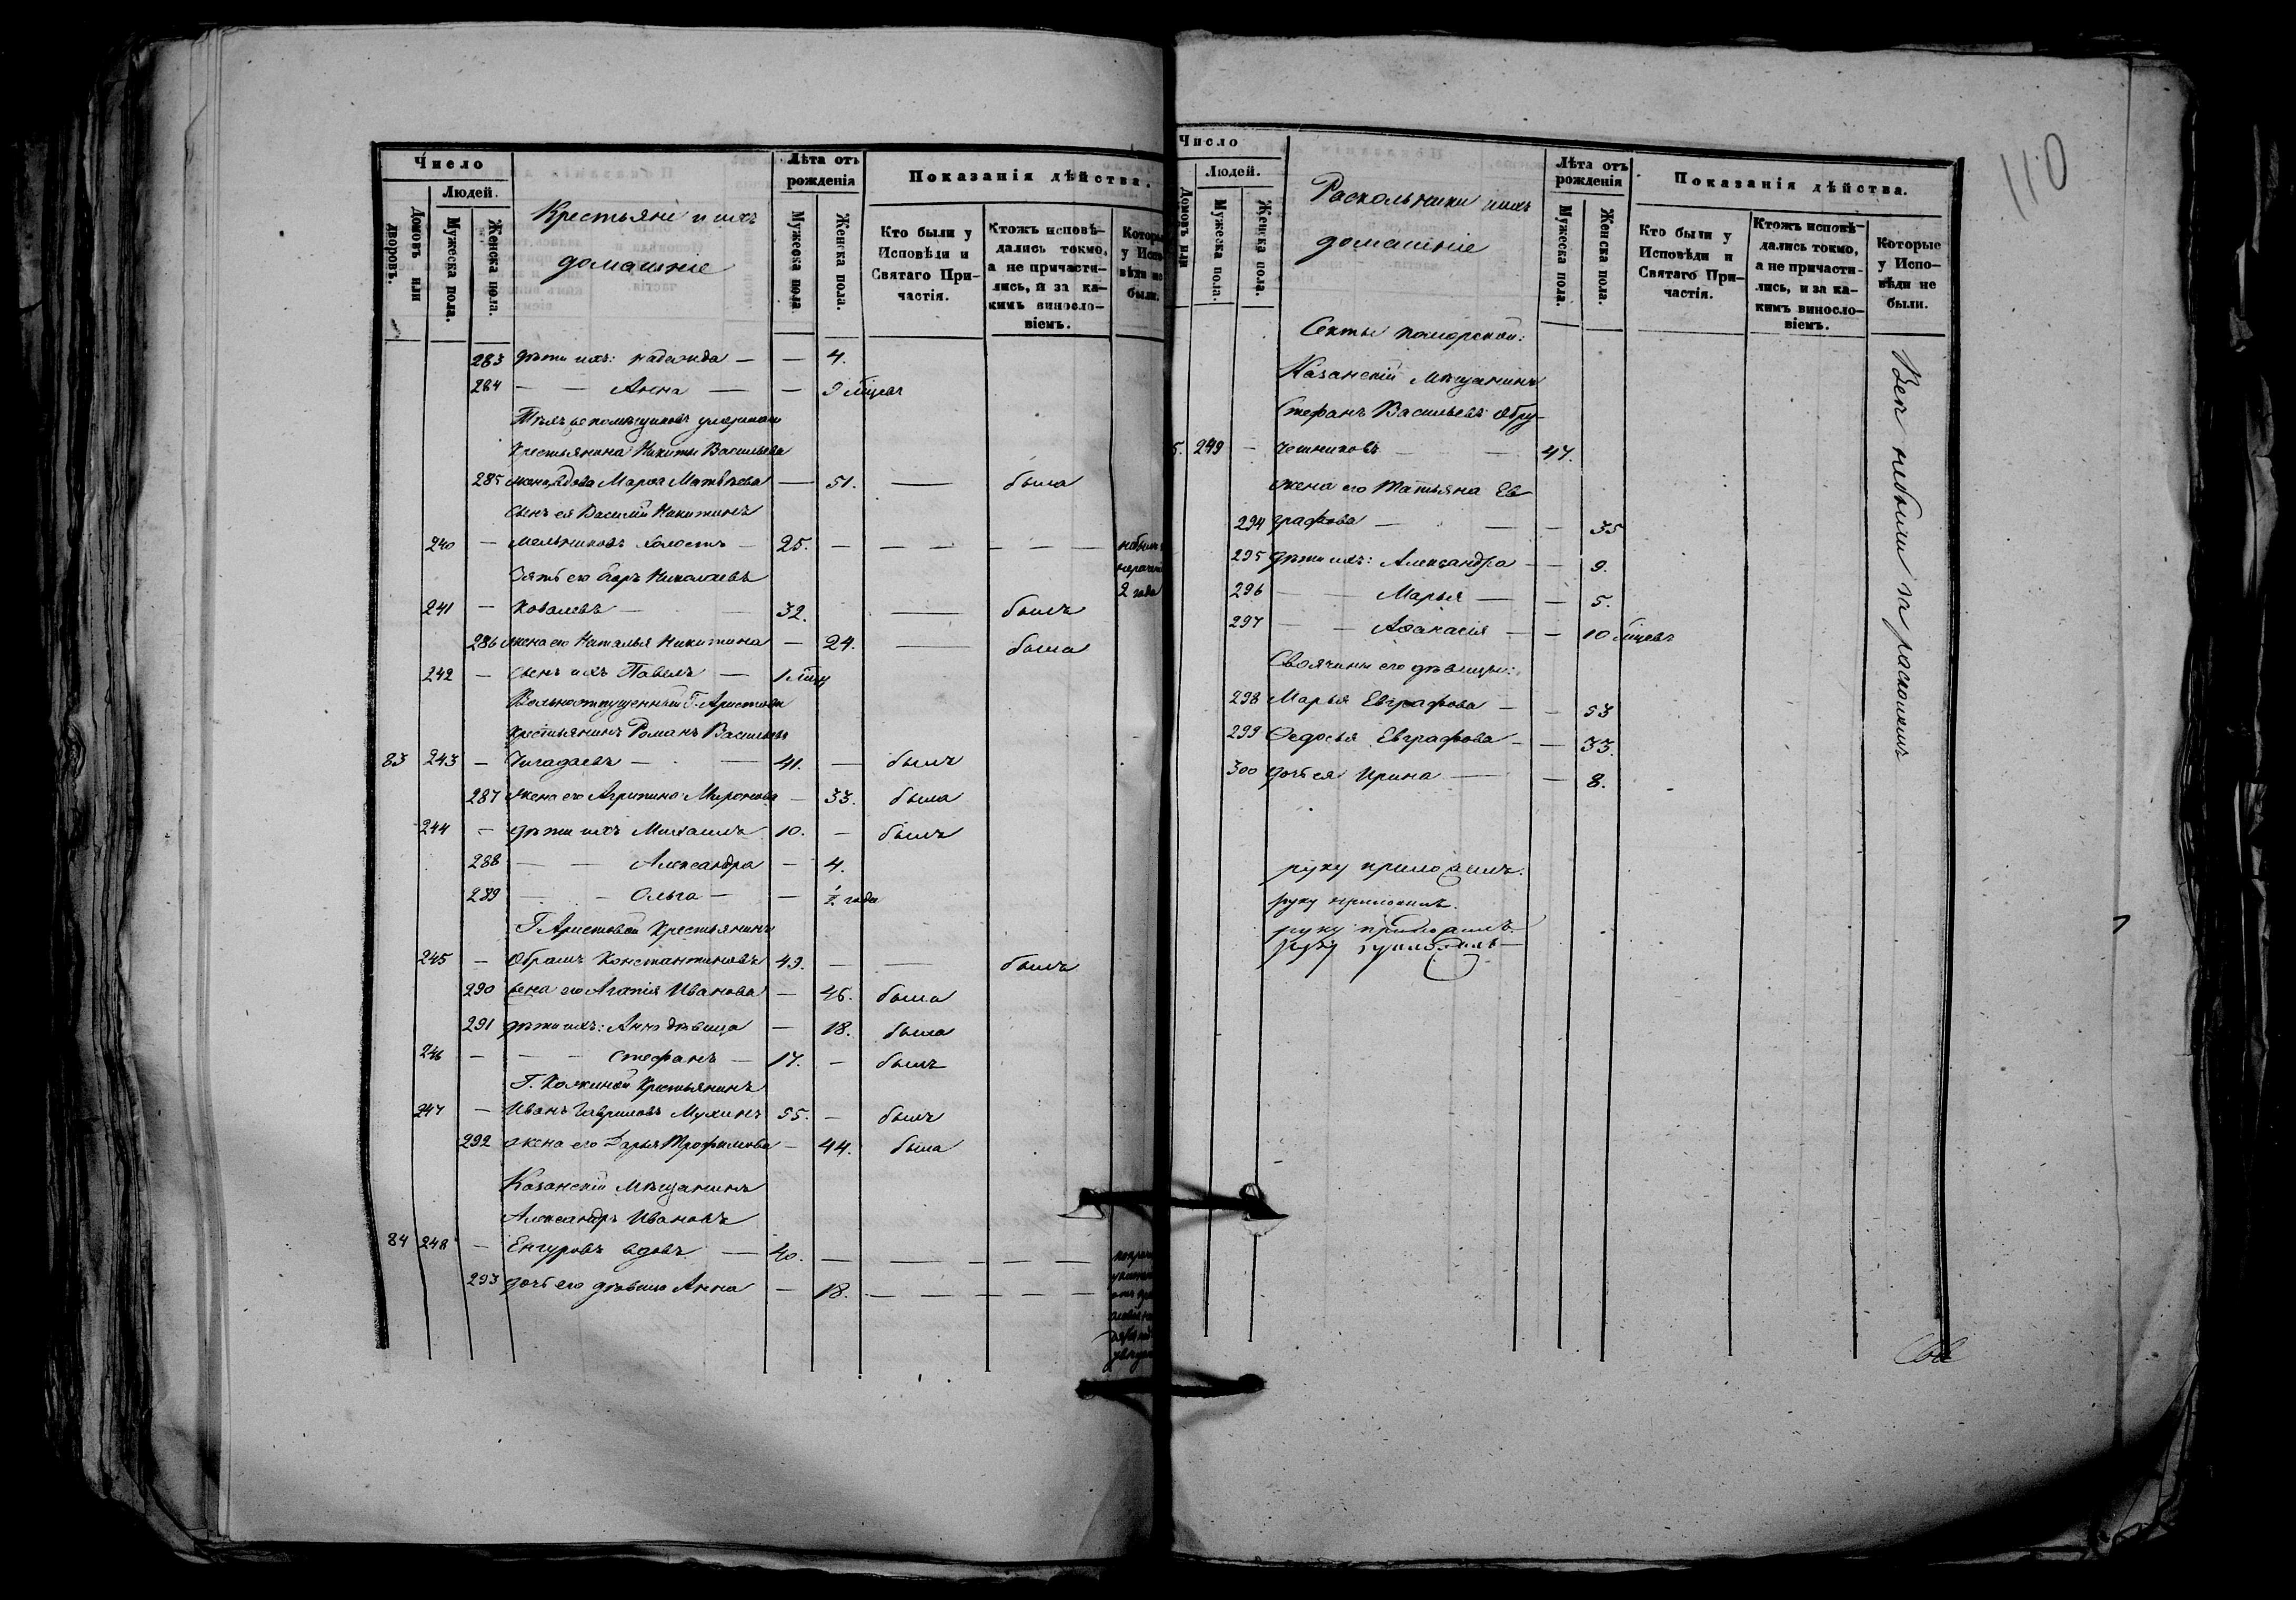 Число
Людей.
Домовъ или дворовъ.
Мужеска пола.
Женска пола.
Крестьяне и ихъ
домашніе
Лѣта отъ рожденія
Мужеска пола
Женска пола.
Показанія дѣйства.
Кто были у Исповѣди и Святаго При-частія.
Ктожъ исповѣ-дались токмо, а не причасти-лись, и за ка-кимъ винословіемъ.
283 дѣти ихъ: Надежда — — 4.
284 — — Анна — — 9 мѣцев
крестьянина Никиты Васильева
285 жена вдова Марѳа Матвѣева — 51. — была
Сынъ ея Василій Никитинъ
240 — Мельниковъ холостъ — 25. — — — — — —
Зять его Егоръ Николаевъ
2 года
241 — Ковалевъ — — 32. — былъ
286 жена его Наталья Никитина — 24. — была
242 — сынъ ихъ Павелъ —
Вольноотпущенный Г. Аристова
крестьянинъ Романъ Васильевъ
83 243 — Чигадаевъ — — 41. — былъ
287 жена его Агрипина Миронова — 33. была
244 — дѣти ихъ Михаилъ 10. — былъ
288 — — Александра — 4.
289 — — Ольга — — ½ года
Г. Аристовой Крестьянинъ
245 — Абрамъ Константиновъ 49. — — былъ
290 жена его Агапія Иванова — 46. была
291 дѣти ихъ: Анна дѣвица — 18. была
246 — — — Стефанъ — 17. — былъ
Крестьянинъ
247 — Иванъ Гавриловъ Мухинъ 55. — былъ
292 жена его Дарья Трофимова — 44. была
Казанскій Мѣщанинъ
Александръ Ивановъ
84 248 — Енгуровъ вдовъ — 40. — — — — —
293 дочь его дѣвица Анна — 18. — — — — — —
110
Число
Людей.
Домовъ или
Мужеска пола.
Женска пола.
Раскольники и ихъ
домашніе
Лѣта отъ рожденія
Мужеска пола.
Женска пола.
Показанія дѣйства.
Кто были у Исповѣди и Святаго При-частія.
Ктожъ исповѣ-дались токмо, а не причасти-лись, и за ка-кимъ винословіемъ.
Которые у Испо-вѣди не были.
Секты поморской:
Казанскій Мѣщанинъ
Стефанъ Васильевъ Обру-
5. 249 — чешниковъ — — 47.
жена его Татьяна Ев
294 графова — — — 35
295 дѣти ихъ: Александра — — 9.
296 — — Марья — — 5.
297 — — Аѳанасія — — 10 мѣцевъ
Своячины его дѣвицы:
298 Марья Евграфова — — 53
299 Ѳедосья Евграфова — — 33.
300 дочь ея Ирина — — 8.
Всѣ небыли за расколомъ
руку приложилъ.
руку приложилъ.
руку приложилъ
руку приложилъ